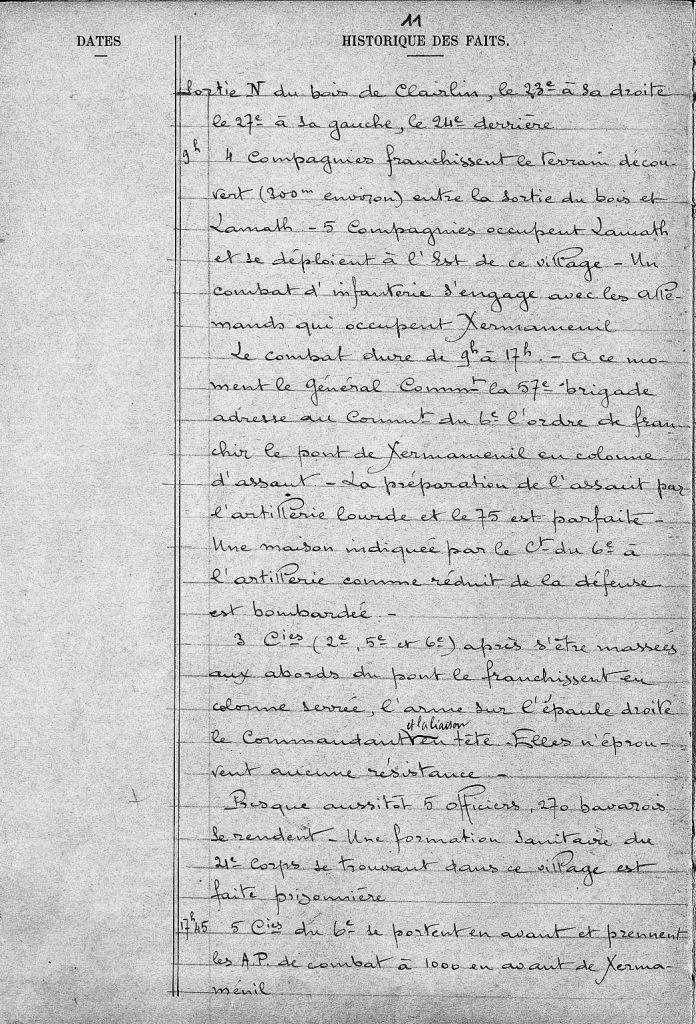 11
DATES
HISTORIQUE DES FAITS.
Sortie N du bois de Clairlin, le 23e à sa droite
le 27e à sa gauche, le 24e derrière
9h 4 Compagnies franchissent le terrain décou-
vert (300m environ) entre la sortie du bois et
Lamath - 5 Compagnies occupent Lamath
et se déploient à l'Est de ce village - Un
combat d'infanterie s'engage avec les Alle-
mands qui occupent Xermamenil
Le combat dure de 9h à 17h. - A ce mo-
ment le Général Commt la 57e brigade
adresse au Commt du 6e l'ordre de fran
chir le pont de Xermamenil en colonne
d'assaut - La préparation de l'assaut par
l'artillerie lourde et le 75 est parfaite -
Une maison indiquée par le Ct du 6e à
l'artillerie comme réduit de la défense
est bombardée -
3 Cies (2e, 5e et 6e) après s'être massées
aux abords du pont le franchissent en
colonne serrée, l'arme sur l'épaule droite
le Commandant et la liaison en tête. Elles n'éprou-
vent aucune résistance -
Presque aussitôt 5 officiers, 270 bavarois
se rendent - Une formation sanitaire du
21e Corps se trouvant dans ce village est
faite prisonnière
17h45 5 Cies du 6e se portent en avant et prennent
les A.P. de combat à 1000 en avant de Xerma-
ménil